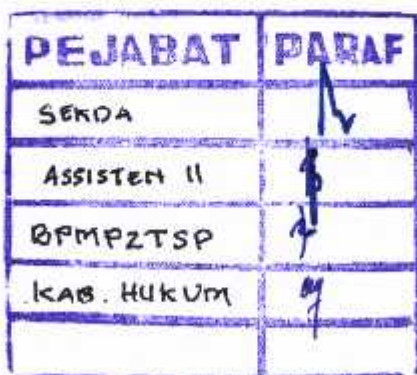 PEJABAT PARAF
SEKDA
ASSISTEN II
BPMPZTSP
KAB. HUKUM